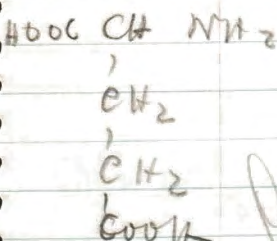 HOOC CH NH2
CH2
CH2
COOH